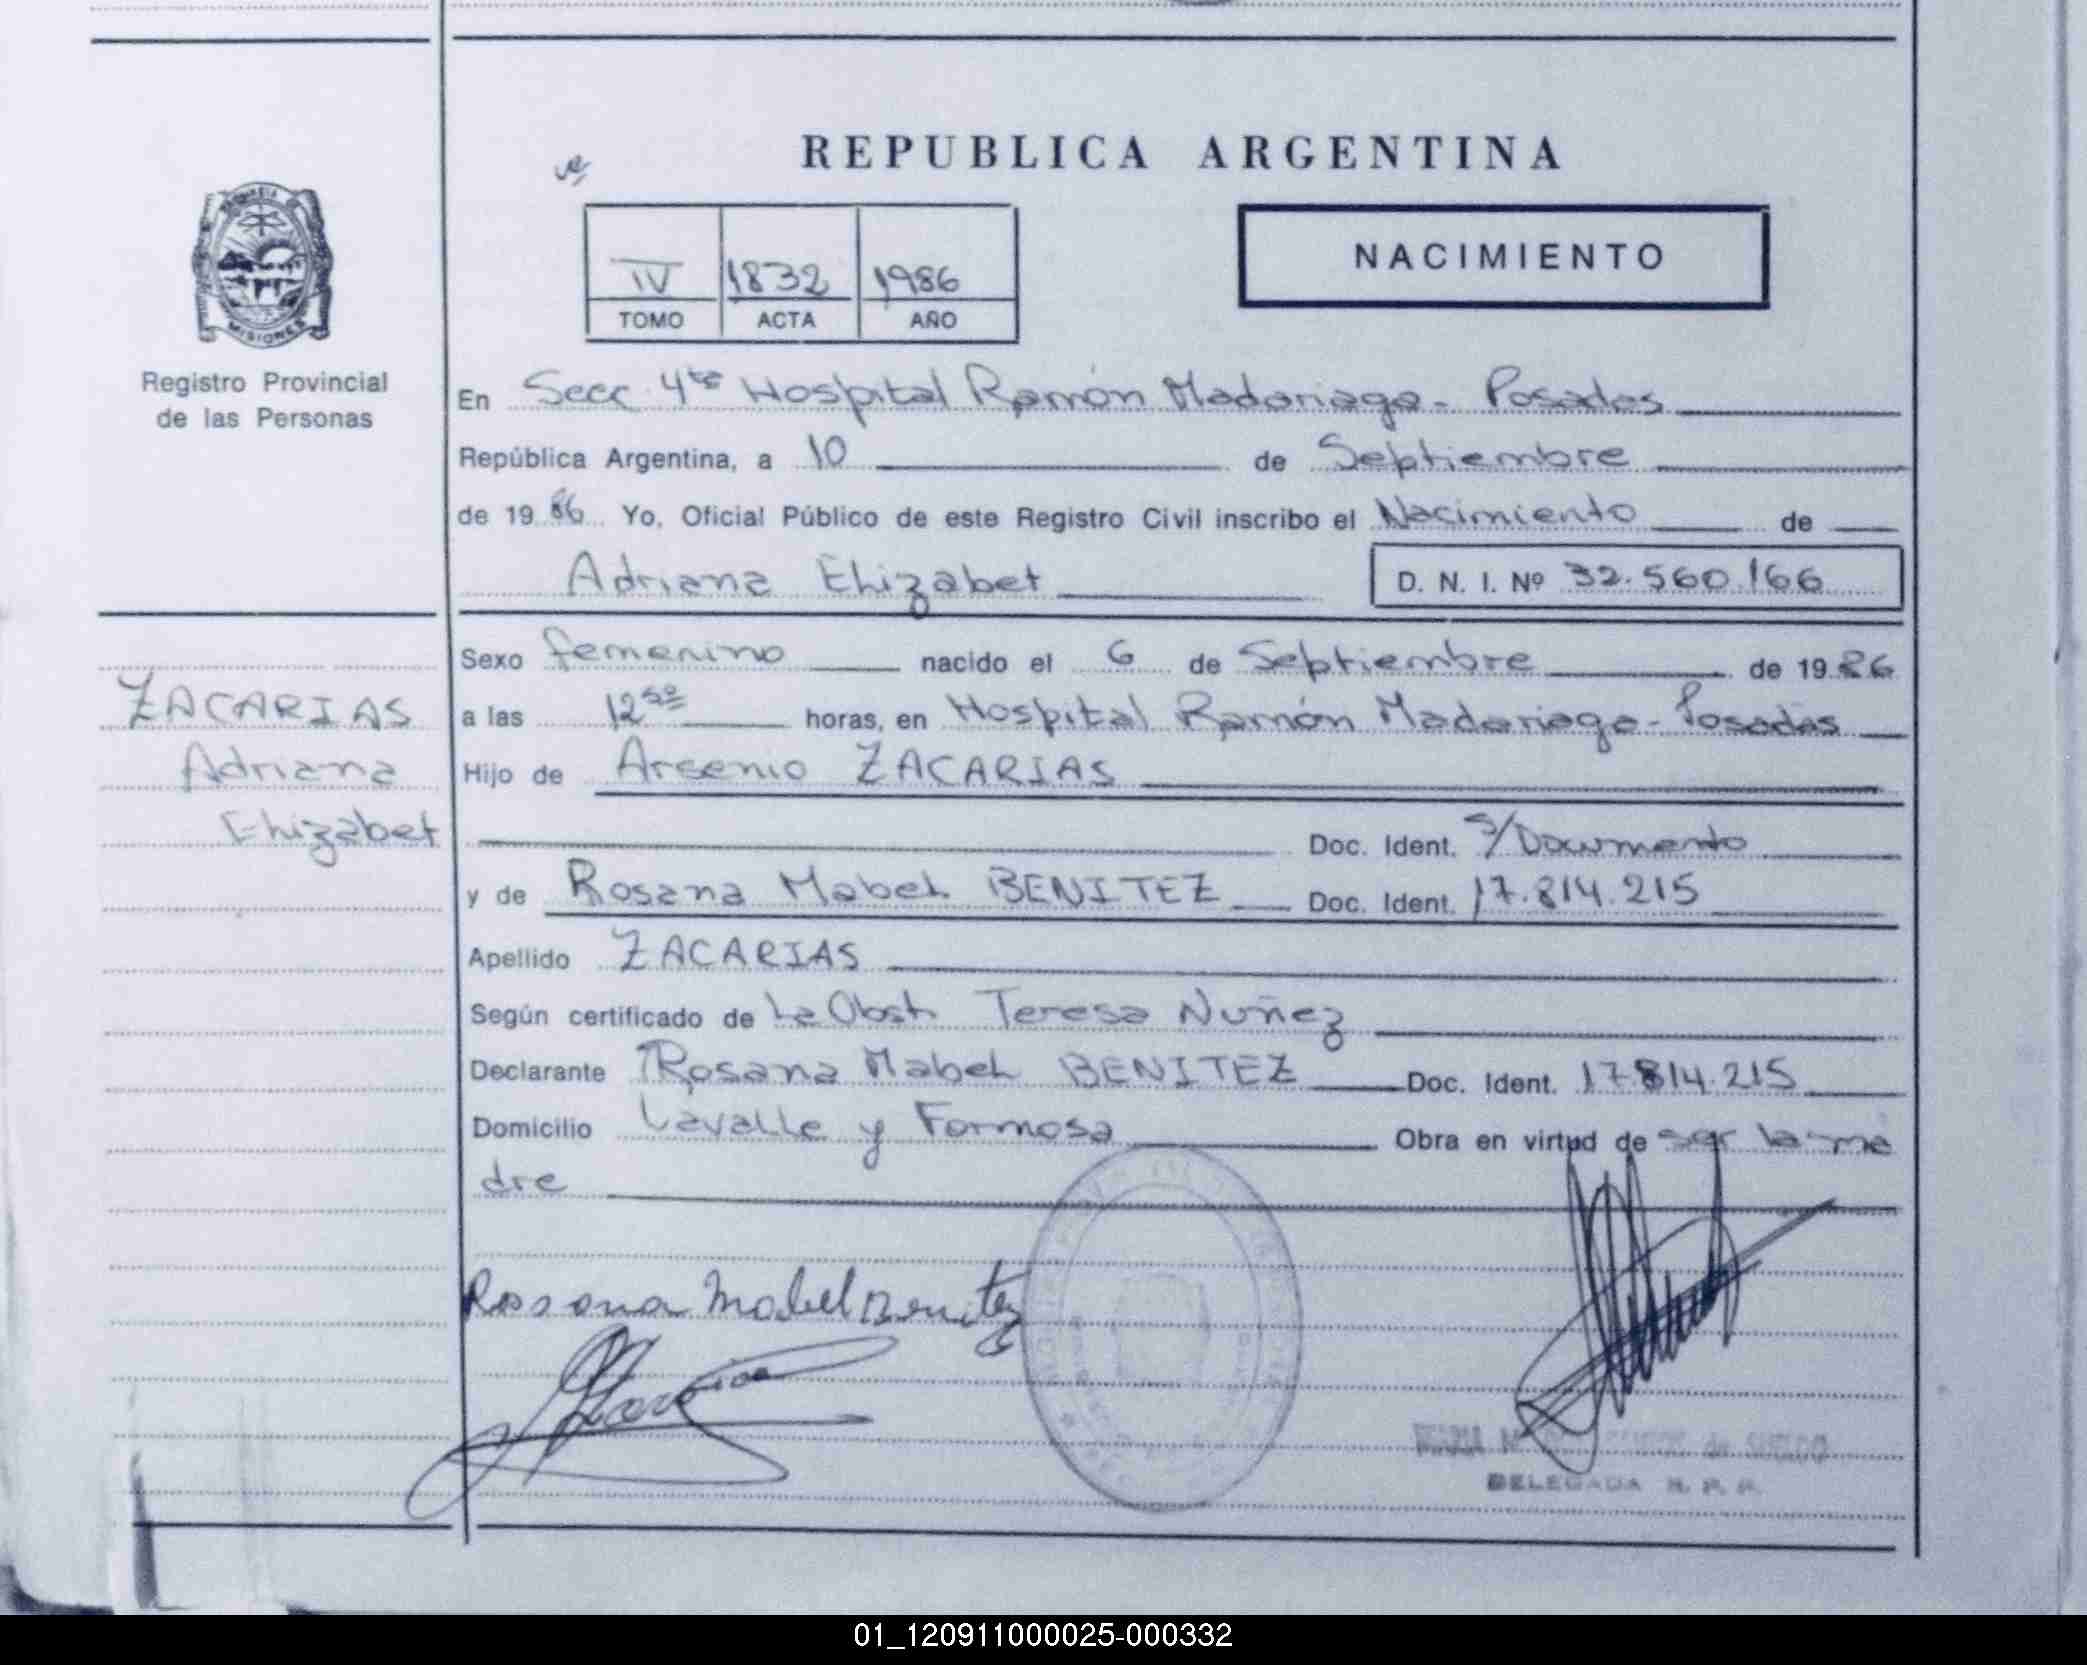 REPUBLICA ARGENTINA
NACIMIENTO
IV 1832 1986
TOMO ACTA AÑO
MISIONES
Registro Provincial
de las Personas
En Secc 4ta Hospital Ramón Madariaga - Posadas
República Argentina, a 10 de Septiembre
de 19 86 Yo, Oficial Público de este Registro Civil inscribo el Nacimiento de
Adriana Elizabet D. N. I. Nº 32.560.166
ZACARIAS
Adriana
Elizabet
Sexo femenino nacido el 6 de Septiembre de 19 86
a las 12 horas, en Hospital Ramón Madariaga - Posadas
Hijo de Arsenio ZACARIAS
Doc. Ident. s/Documento
y de Rosana Mabel BENITEZ Doc. Ident. 17.814.215
Apellido ZACARIAS
Según certificado de La Obst. Teresa Nuñez
Declarante Rosana Mabel BENITEZ Doc. Ident. 17.814.215
Domicilio Lavalle y Formosa Obra en virtud de ser la ma
dre
Rosana Mabel Benitez
DELEGADA R. P. P.
01_120911000025-000332